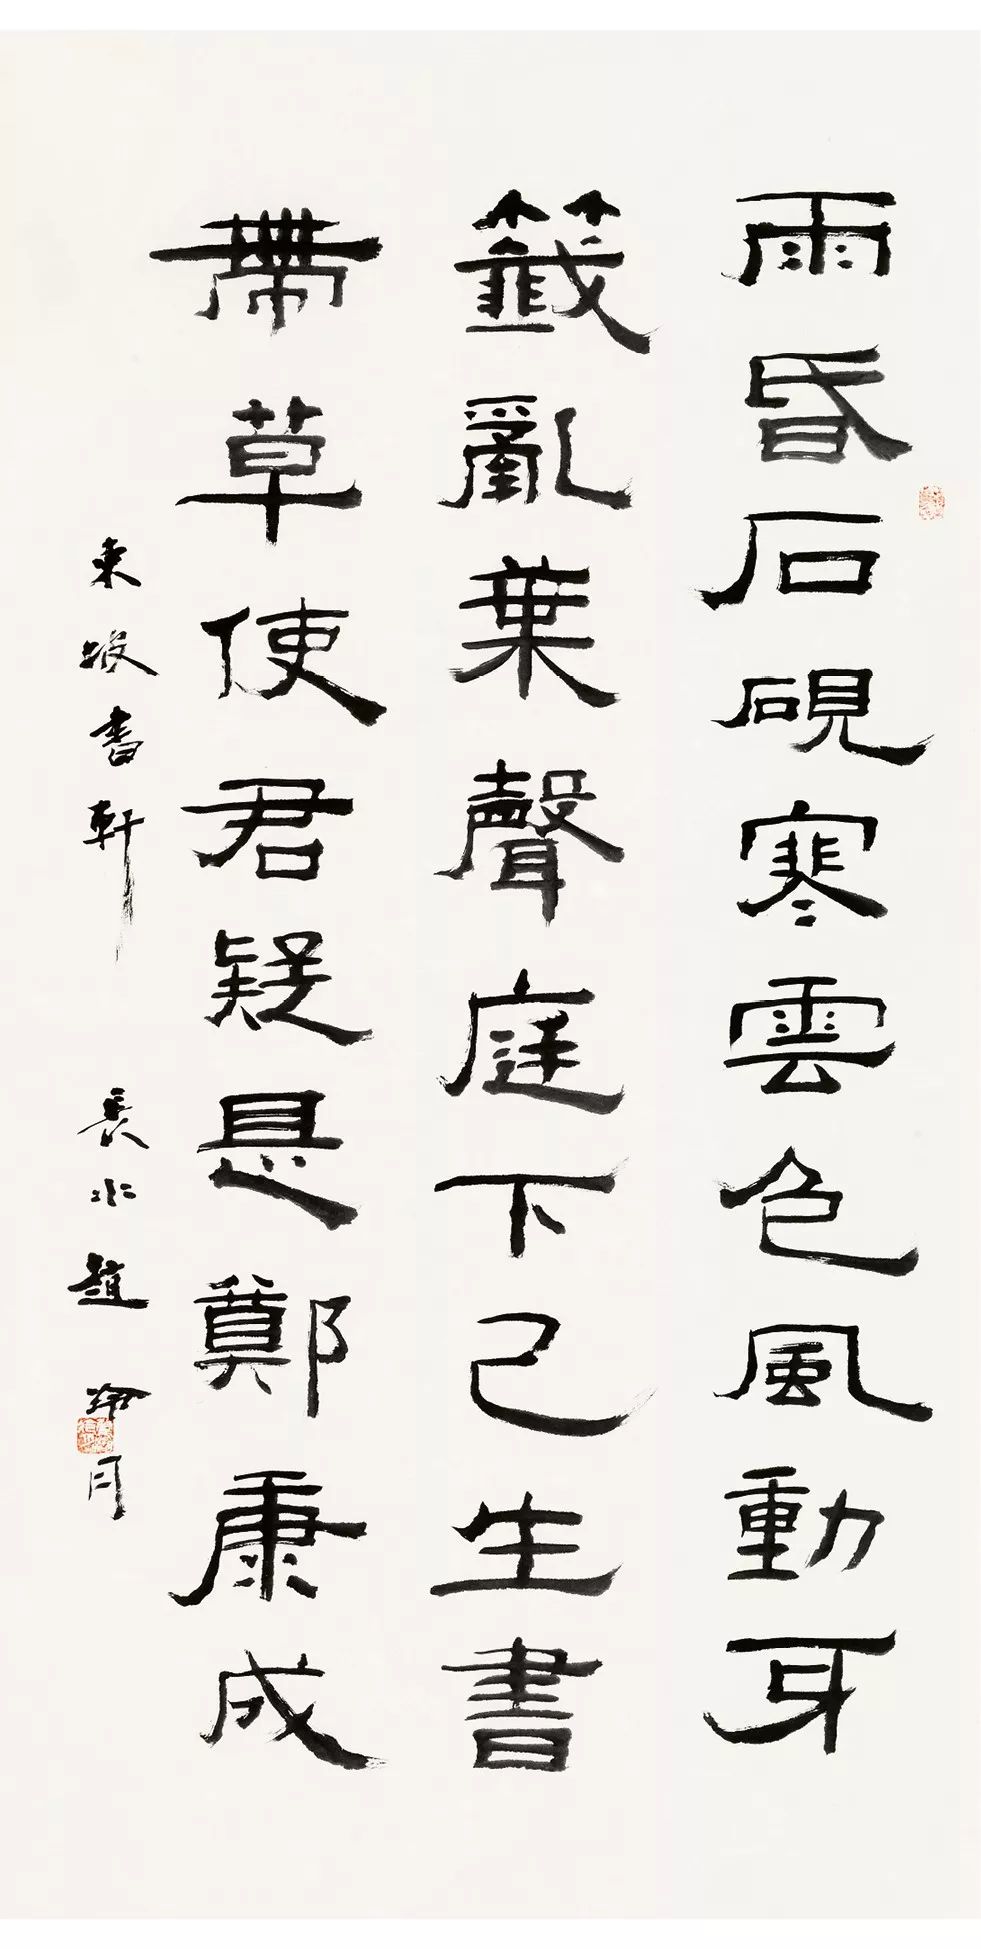 雨昏石硯寒雲色風動牙
籤亂葉聲庭下已生書
帶草使君疑是鄭康成
東坡書軒 長水趙冷月